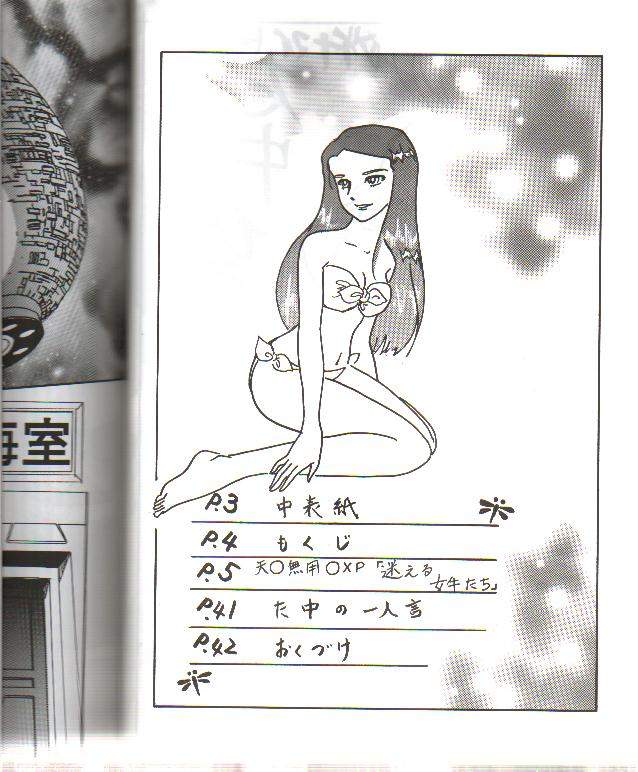 室
P.3 中表紙
P.4 もくじ
P.5 天〇無用〇XP「迷える
女牛たち」
P.41 た中の一人言
P.42 おくづけ